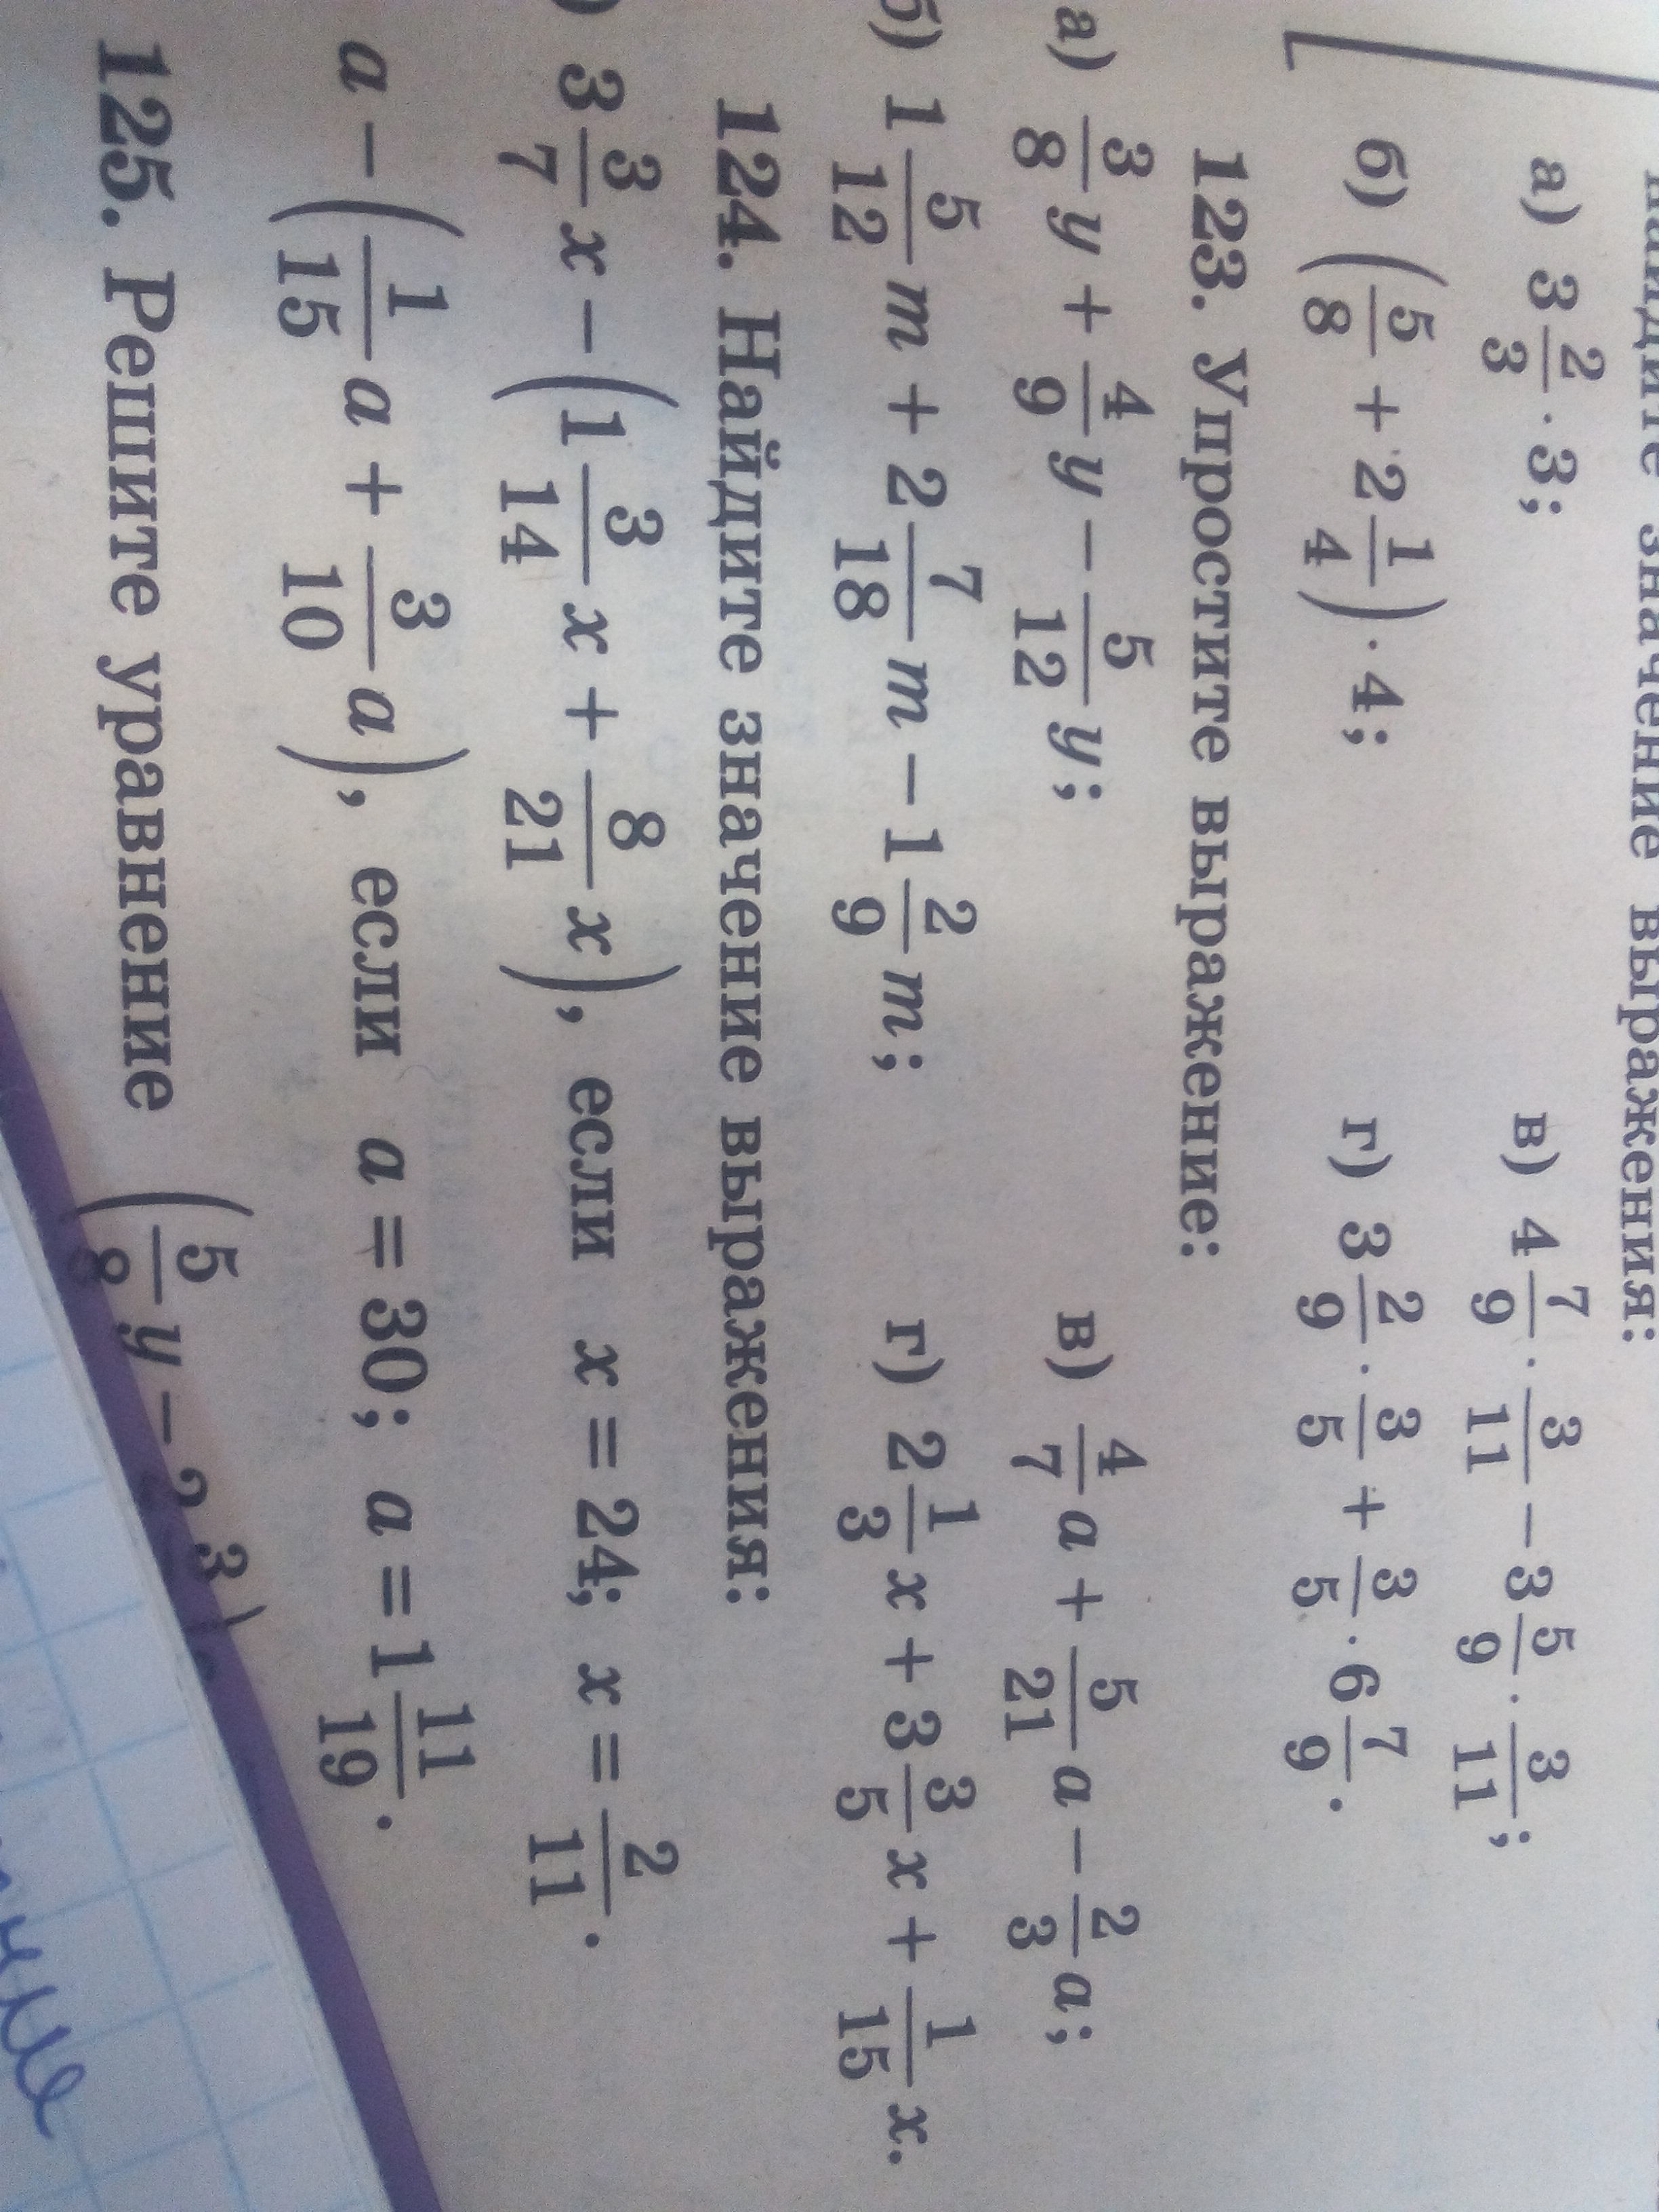 значение выражения:
а) 3 2/3 · 3; в) 4 7/9 · 3/11 − 3 5/9 · 3/11;
б) (5/8 + 2 1/4) · 4; г) 3 2/9 · 3/5 + 3/5 · 6 7/9.
123. Упростите выражение:
а) 3/8 y + 4/9 y − 5/12 y; в) 4/7 a + 5/21 a − 2/3 a;
б) 1 5/12 m + 2 7/18 m − 1 2/9 m; г) 2 1/3 x + 3 3/5 x + 1/15 x.
124. Найдите значение выражения:
) 3 3/7 x − (1 3/14 x + 8/21 x), если x = 24; x = 2/11.
a − (1/15 a + 3/10 a), если a = 30; a = 1 11/19.
125. Решите уравнение (5/8 y − 2 3